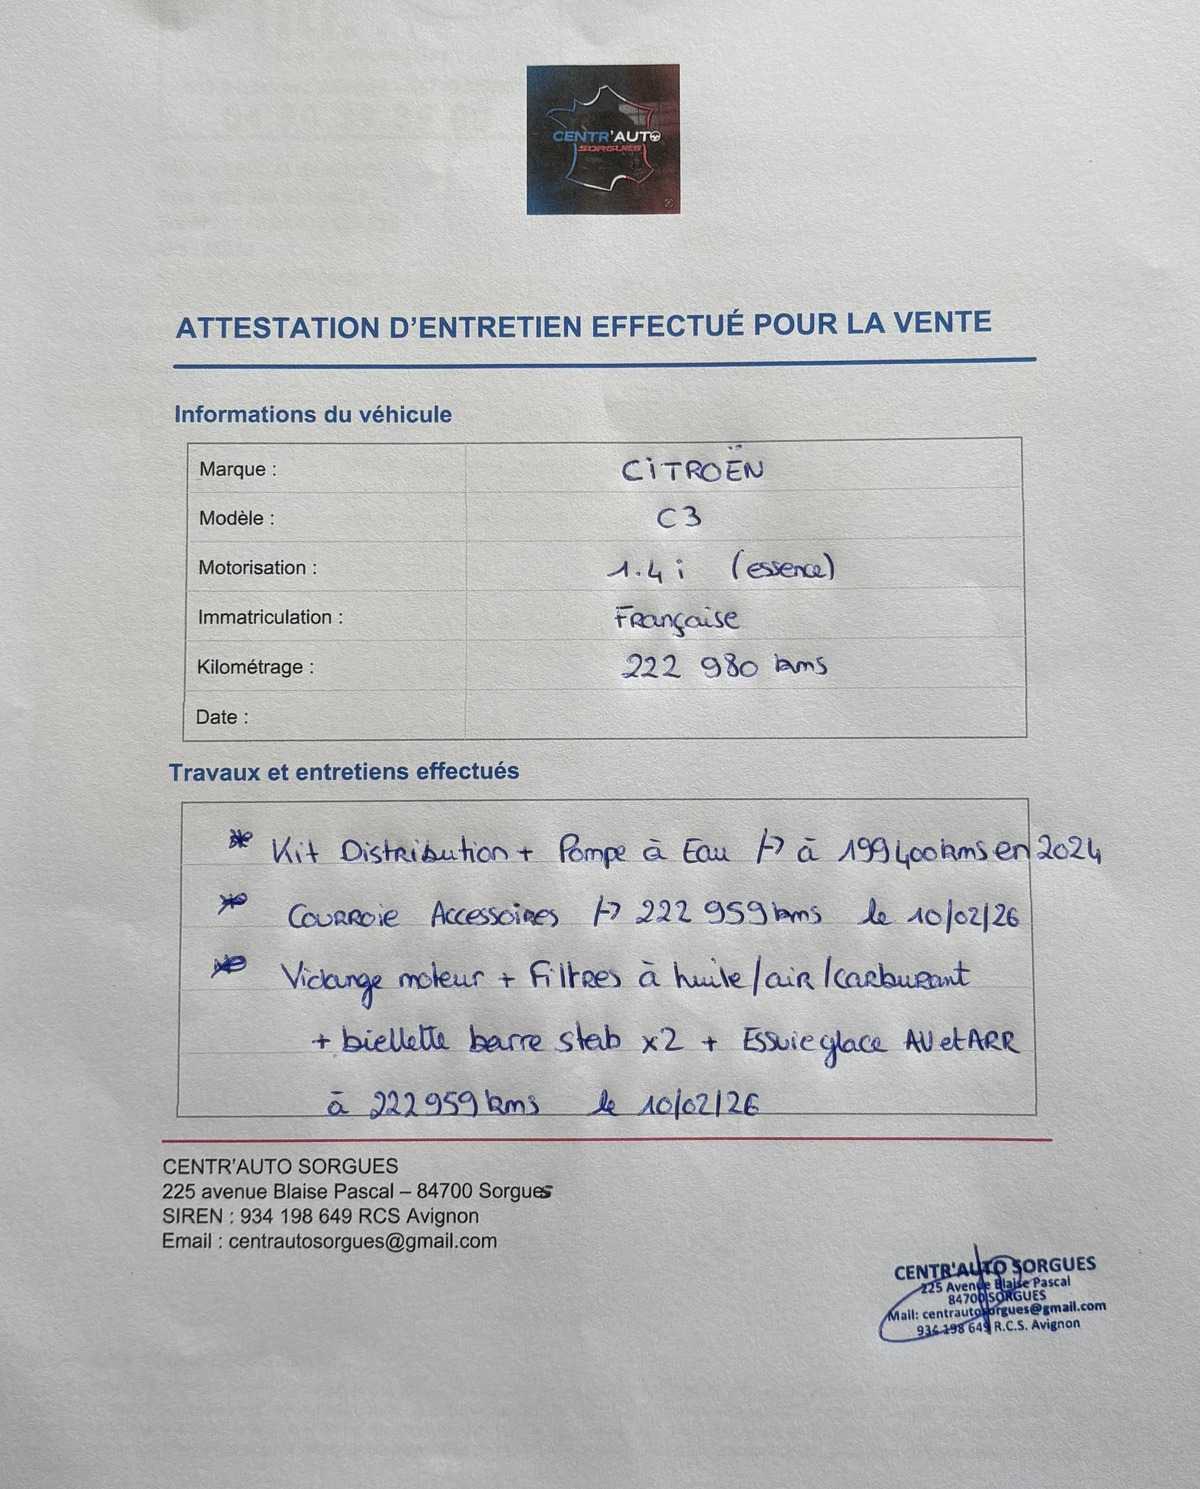 CENTR'AUTO
SORGUES
ATTESTATION D'ENTRETIEN EFFECTUÉ POUR LA VENTE
Informations du véhicule
Marque : CITROËN
Modèle : C3
Motorisation : 1.4 i (essence)
Immatriculation : Française
Kilométrage : 222 980 kms
Date :
Travaux et entretiens effectués
* Kit Distribution + Pompe à Eau |-> à 199 400 kms en 2024
* Courroie Accessoires |-> 222 959 kms le 10/02/26
* Vidange moteur + Filtres à huile/air/carburant
+ biellette barre stab x2 + Essuie glace AV et ARR
à 222 959 kms le 10/02/26
CENTR'AUTO SORGUES
225 avenue Blaise Pascal – 84700 Sorgues
SIREN : 934 198 649 RCS Avignon
Email : centrautosorgues@gmail.com
CENTR'AUTO SORGUES
225 Avenue Blaise Pascal
84700 SORGUES
Mail: centrautosorgues@gmail.com
934 198 649 R.C.S. Avignon